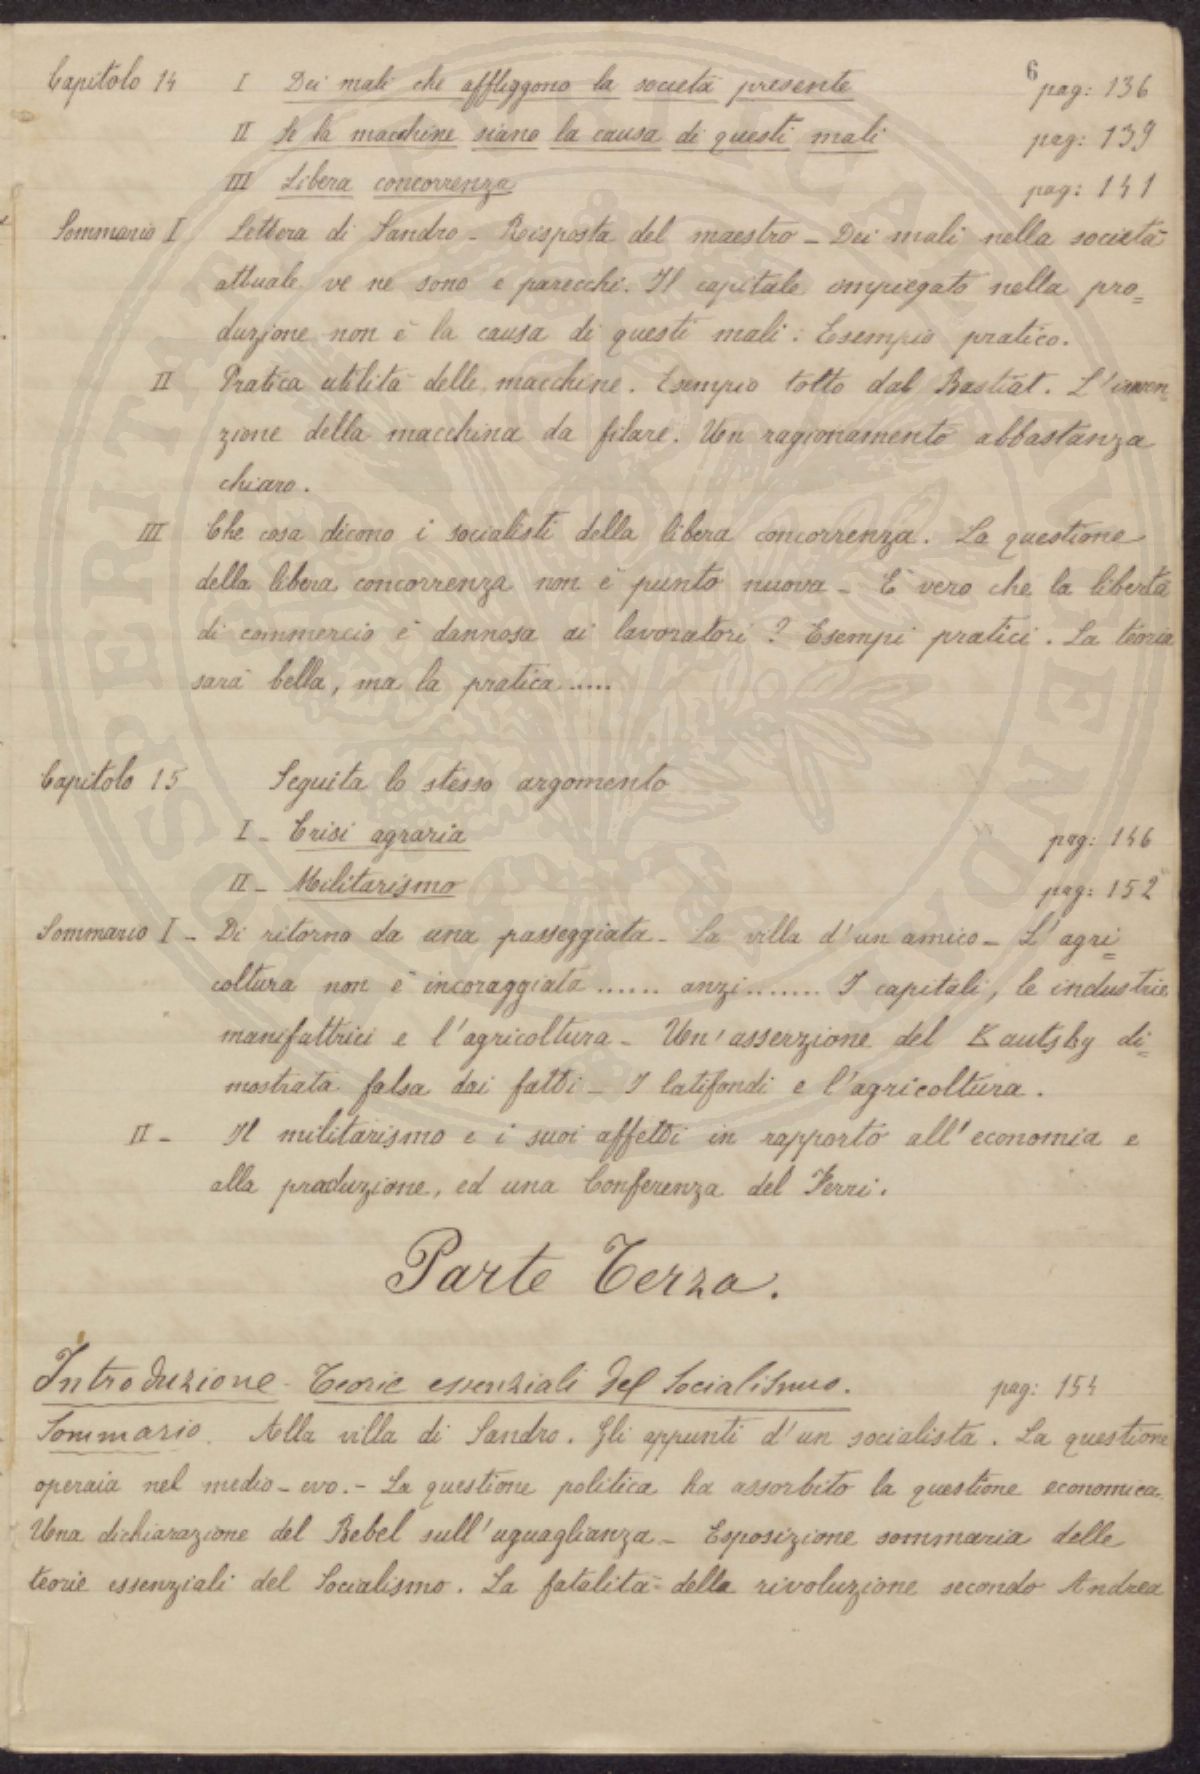 6
Capitolo 14 I Dei mali che affliggono la società presente pag: 136
II Se la macchine siano la causa di questi mali pag: 139
III Libera concorrenza pag: 141
Sommario I Lettera di Sandro - Risposta del maestro - Dei mali nella società
attuale ve ne sono e parecchi. Il capitale impiegato nella pro=
duzione non è la causa di questi mali: Esempio pratico.
II Pratica utilità delle macchine. Esempio tolto dal Bastiat. L'inven=
zione della macchina da filare. Un ragionamento abbastanza
chiaro.
III Che cosa dicono i socialisti della libera concorrenza. La questione
della libera concorrenza non è punto nuova - È vero che la libertà
di commercio è dannosa ai lavoratori? Esempi pratici. La teoria
sarà bella, ma la pratica.....
Capitolo 15 Seguita lo stesso argomento
I - Crisi agraria pag: 146
II - Militarismo pag: 152
Sommario I - Di ritorno da una passeggiata - La villa d'un amico - L'agri=
coltura non è incoraggiata...... anzi....... I capitali, le industrie
manifattrici e l'agricoltura - Un'asserzione del Kautsby di=
mostrata falsa dai fatti - I latifondi e l'agricoltura.
II - Il militarismo e i suoi affetti in rapporto all'economia e
alla produzione, ed una Conferenza del Ferri.
Parte Terza.
Introduzione - Teorie essenziali del Socialismo. pag: 154
Sommario. Alla villa di Sandro. Gli appunti d'un socialista. La questione
operaia nel medio-evo. - La questione politica ha assorbito la questione economica.
Una dichiarazione del Bebel sull'uguaglianza - Esposizione sommaria delle
teorie essenziali del Socialismo. La fatalità della rivoluzione secondo Andrea